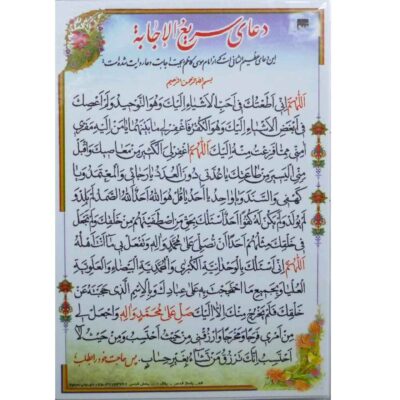 دعای سریع الإجابة
این دعای عظیم الشأنی است که از امام موسی کاظم بجهت اجابت دعا روایت شده است
بسم الله الرحمن الرحیم
اَللّٰهُمَّ اِنّی اَطَعْتُكَ فی اَحَبِّ الْاَشْیاءِ اِلَیْكَ وَهُوَ التَّوْحیدُ وَلَمْ اَعْصِكَ
فی اَبْغَضِ الْاَشْیاءِ اِلَیْكَ وَهُوَ الْكُفْرُ فَاغْفِرْ لی ما بَیْنَهُما یا مَنْ اِلَیْهِ مَفَرّی
آمِنّی مِمّا فَزِعْتُ مِنْهُ اِلَیْكَ اَللّٰهُمَّ اغْفِرْ لِیَ الْكَثیرَ مِنْ مَعاصیكَ وَاقْبَلْ
مِنِّی الْیَسیرَ مِنْ طاعَتِكَ یا عُدَّتی دُونَ الْعُدَدِ وَیا رَجائی وَالْمُعْتَمَدَ وَیا
كَهْفی وَالسَّنَدَ وَیا واحِدُ یا اَحَدُ یا قُلْ هُوَ اللهُ اَحَدٌ اَللهُ الصَّمَدُ لَمْ یَلِدْ وَ
لَمْ یُولَدْ وَلَمْ یَكُنْ لَهُ كُفُوًا اَحَدٌ اَسْئَلُكَ بِحَقِّ مَنِ اصْطَفَیْتَهُمْ مِنْ خَلْقِكَ وَلَمْ تَجْعَلْ
فی خَلْقِكَ مِثْلَهُمْ اَحَدًا اَنْ تُصَلِّیَ عَلی مُحَمَّدٍ وَآلِهِ وَتَفْعَلَ بی ما اَنْتَ اَهْلُهُ
اَللّٰهُمَّ اِنّی اَسْئَلُكَ بِالْوَحْدانِیَّةِ الْكُبْری وَالْمُحَمَّدِیَّةِ الْبَیْضاءِ وَالْعَلَوِیَّةِ
الْعُلْیا وَبِجَمیعِ مَا احْتَجَجْتَ بِهِ عَلی عِبادِكَ وَبِالْاِسْمِ الَّذی حَجَبْتَهُ عَنْ
خَلْقِكَ فَلَمْ یَخْرُجْ مِنْكَ اِلّا اِلَیْكَ صَلِّ عَلی مُحَمَّدٍ وَآلِهِ وَاجْعَلْ لی
مِنْ اَمْری فَرَجًا وَمَخْرَجًا وَارْزُقْنی مِنْ حَیْثُ اَحْتَسِبُ وَمِنْ حَیْثُ لا
اَحْتَسِبُ اِنَّكَ تَرْزُقُ مَنْ تَشاءُ بِغَیْرِ حِسابٍ پس حاجت خود را بطلب